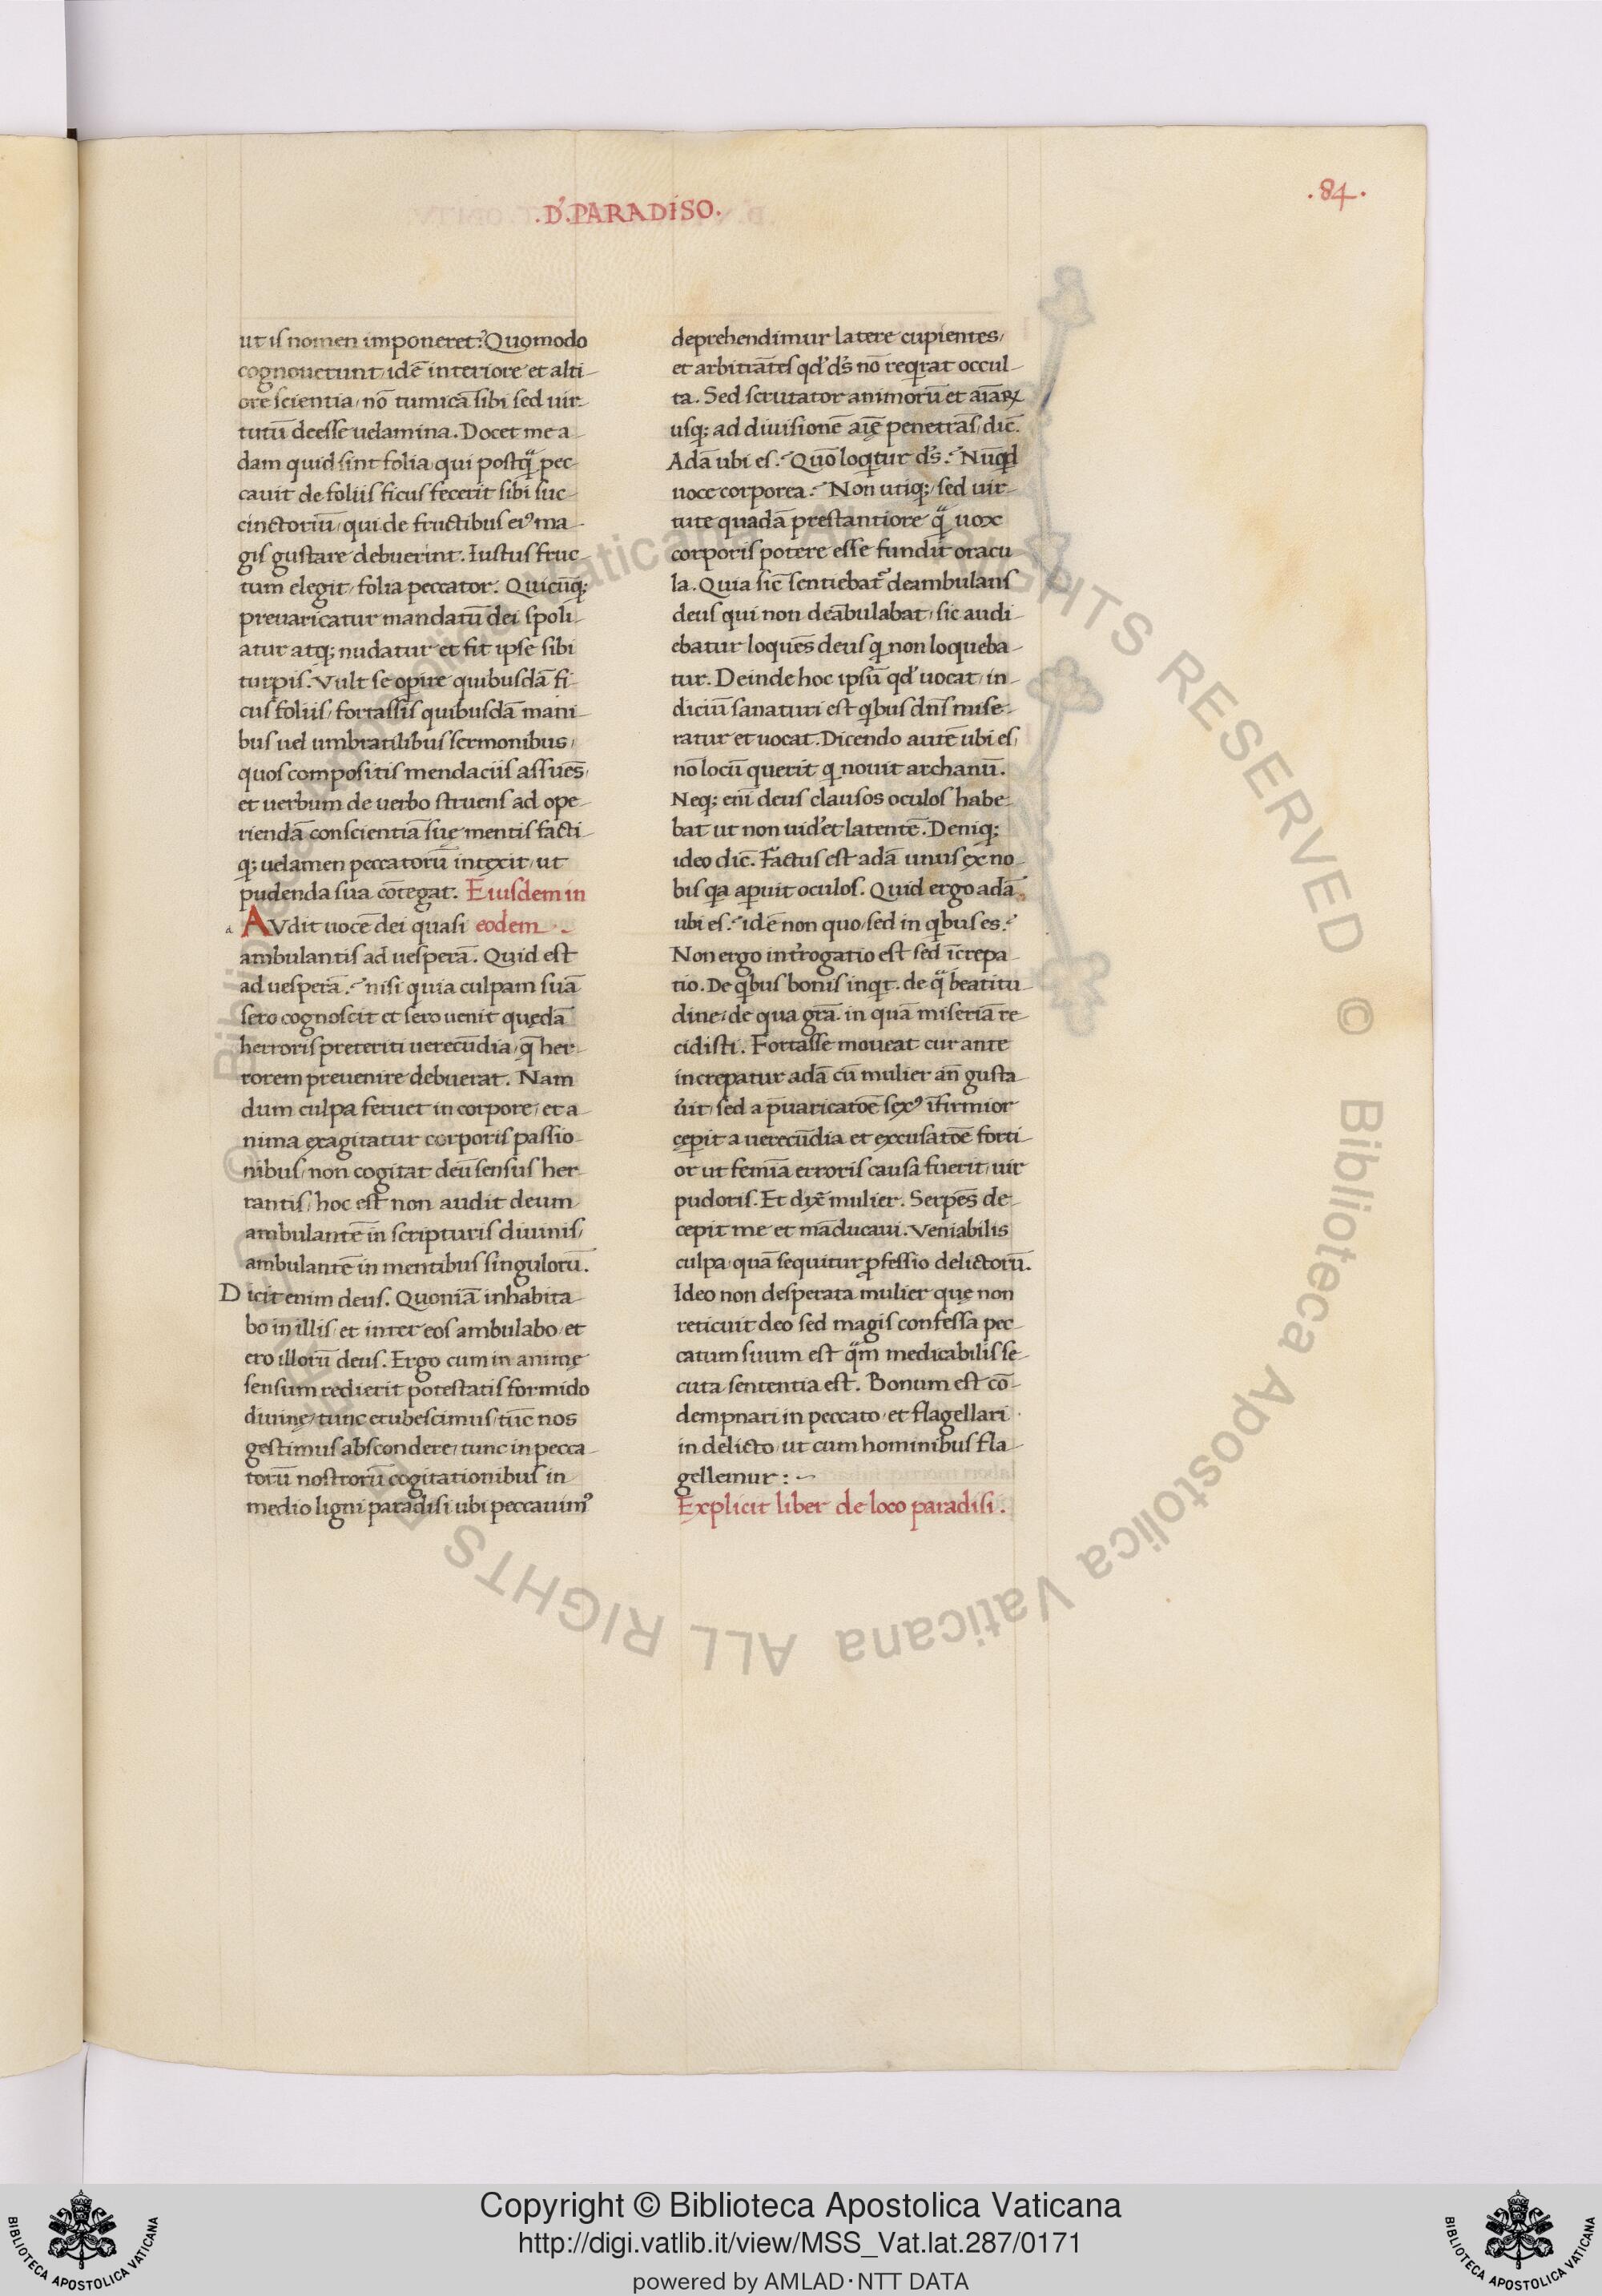 .D'. PARADISO.
.84.
ut is nomen imponeret? Quomodo
cognouerunt, idē interiore et alti-
ore scientia, nō tumicā sibi sed uir-
tutū deesse uelamina. Docet me a-
dam quid sint folia, qui postqᷓ pec-
cauit de foliis ficus fecerit sibi suc-
cinctoriū, qui de fructibus eiꝰ ma-
gis gustare debuerint. Iustus fruc-
tum elegit, folia peccator. Quicūq;
preuaricatur mandatū dei spoli-
atur atq; nudatur et fit ipse sibi
turpis. Vult se operire quibusdā fi-
cus foliis, fortassis quibusdā mani-
bus uel umbratilibus sermonibus,
quos compositis mendaciis assuēs,
et uerbum de uerbo struens ad ope-
riendā conscientiā suę mentis facti-
q; uelamen peccatorū intexit, ut
pudenda sua cōtegat. Eiusdem in
a AVdit uocē dei quasi eodem
ambulantis ad uesperā. Quid est
ad uesperā? nisi quia culpam suā
sero cognoscit et sero uenit quędā
herroris preteriti uerecūdia, q̄ her-
rorem preuenire debuerat. Nam
dum culpa feruet in corpore, et a-
nima exagitatur corporis passio-
nibus, non cogitat deū sensus her-
rantis, hoc est non audit deum
ambulantē in scripturis diuinis,
ambulantē in mentibus singulorū.
Dicit enim deus. Quoniā inhabita-
bo in illis, et inter eos ambulabo, et
ero illorū deus. Ergo cum in animę
sensum redierit potestatis formido
diuinę, tunc erubescimus, tūc nos
gestimus abscondere, tunc in pecca-
torū nostrorū cogitationibus in
medio ligni paradisi ubi peccauimꝰ
deprehendimur latere cupientes,
et arbitrātes qd' d's nō requirat occul-
ta. Sed scrutator animorū et aīaꝝ
usq; ad diuisionē aīę penetrās, dic̄.
Adā ubi es? Quō loqitur d's? Nūqd
uoce corporea? Non utiq;, sed uir-
tute quadā prestantiore qᷓ uox
corporis potere esse fundūt oracu
la. Quia sic̄ sentiebat' deambulans
deus qui non deābulabat, sic audi-
ebatur loquēs deus qi non loqueba-
tur. Deinde hoc ipsū qd' uocat, in-
diciū sanaturi est qibus dn̄s mise-
ratur et uocat. Dicendo autē ubi es,
nō locū querit qi nouit archanū.
Neq; enī deus clausos oculos habe-
bat ut non uid'et latentē. Deniq;
ideo dic̄. Factus est adā unus ex no-
bis qa aperuit oculos. Quid ergo adā
ubi es? idē non quo, sed in qibus es?
Non ergo int'rogatio est sed īcrepa-
tio. De qibus bonis inqit. de qᷓ beatitu-
dine, de qua grā. in quā miseriā re-
cidisti. Fortasse moueat cur ante
increpatur adā cū mulier an̄ gusta-
u'it, sed a p̄uaricatōe sexꝰ īfirmior
cępit a uerecūdia et excusatōe forti-
or ut femīa erroris causa fuerit, uir
pudoris. Et dyc̄ mulier. Serpēs de-
cepit me et māducaui. Veniabilis
culpa, quā sequitur ꝓfessio delictorū.
Ideo non desperata mulier quę non
reticuit deo sed magis confessa pec-
catum suum est qᷓm medicabilis se-
cuta sententia est. Bonum est cō-
dempnari in peccato, et flagellari
in delicto, ut cum hominibus fla-
gellemur :~
Explicit liber de loco paradisi.
Copyright © Biblioteca Apostolica Vaticana
http://digi.vatlib.it/view/MSS_Vat.lat.287/0171
powered by AMLAD·NTT DATA
BIBLIOTECA APOSTOLICA VATICANA
BIBLIOTECA APOSTOLICA VATICANA
© Biblioteca Apostolica Vaticana ALL RIGHTS RESERVED
© Biblioteca Apostolica Vaticana ALL RIGHTS RESERVED